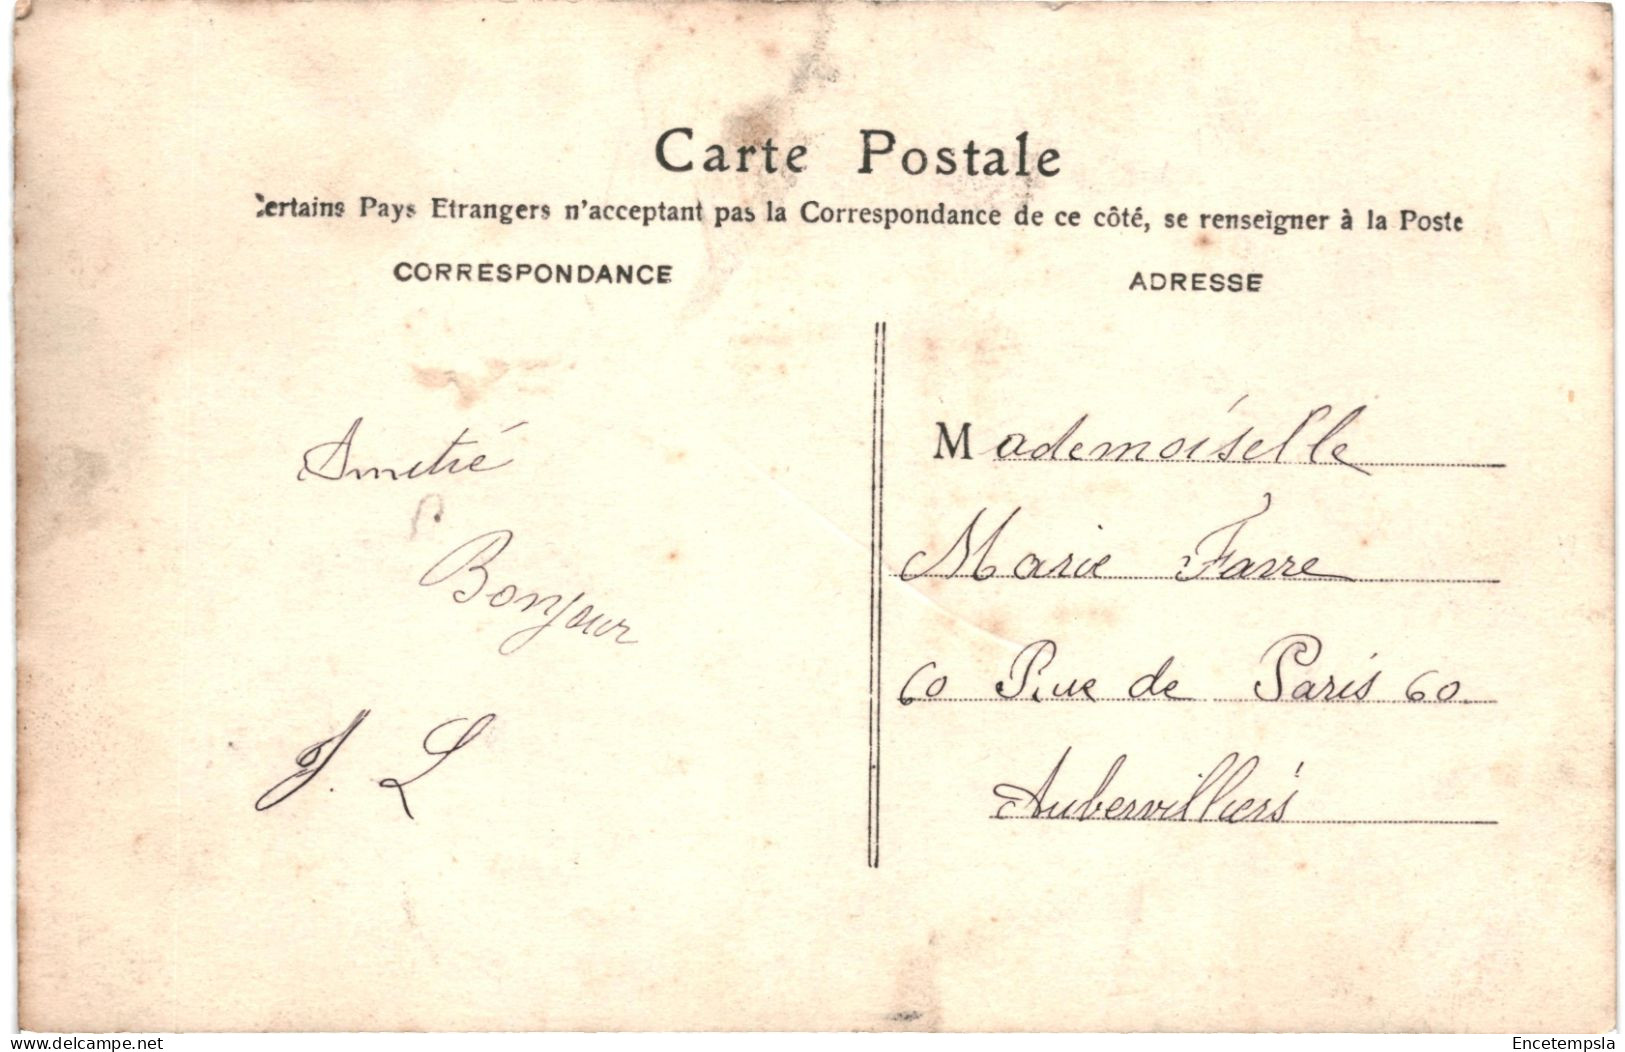 Carte Postale
Certains Pays Etrangers n'acceptant pas la Correspondance de ce côté, se renseigner à la Poste
CORRESPONDANCE
ADRESSE
Amitié
Bonjour
J. L
Mademoiselle
Marie Favre
60 Rue de Paris 60
Aubervilliers
www.delcampe.net
Encetempsla